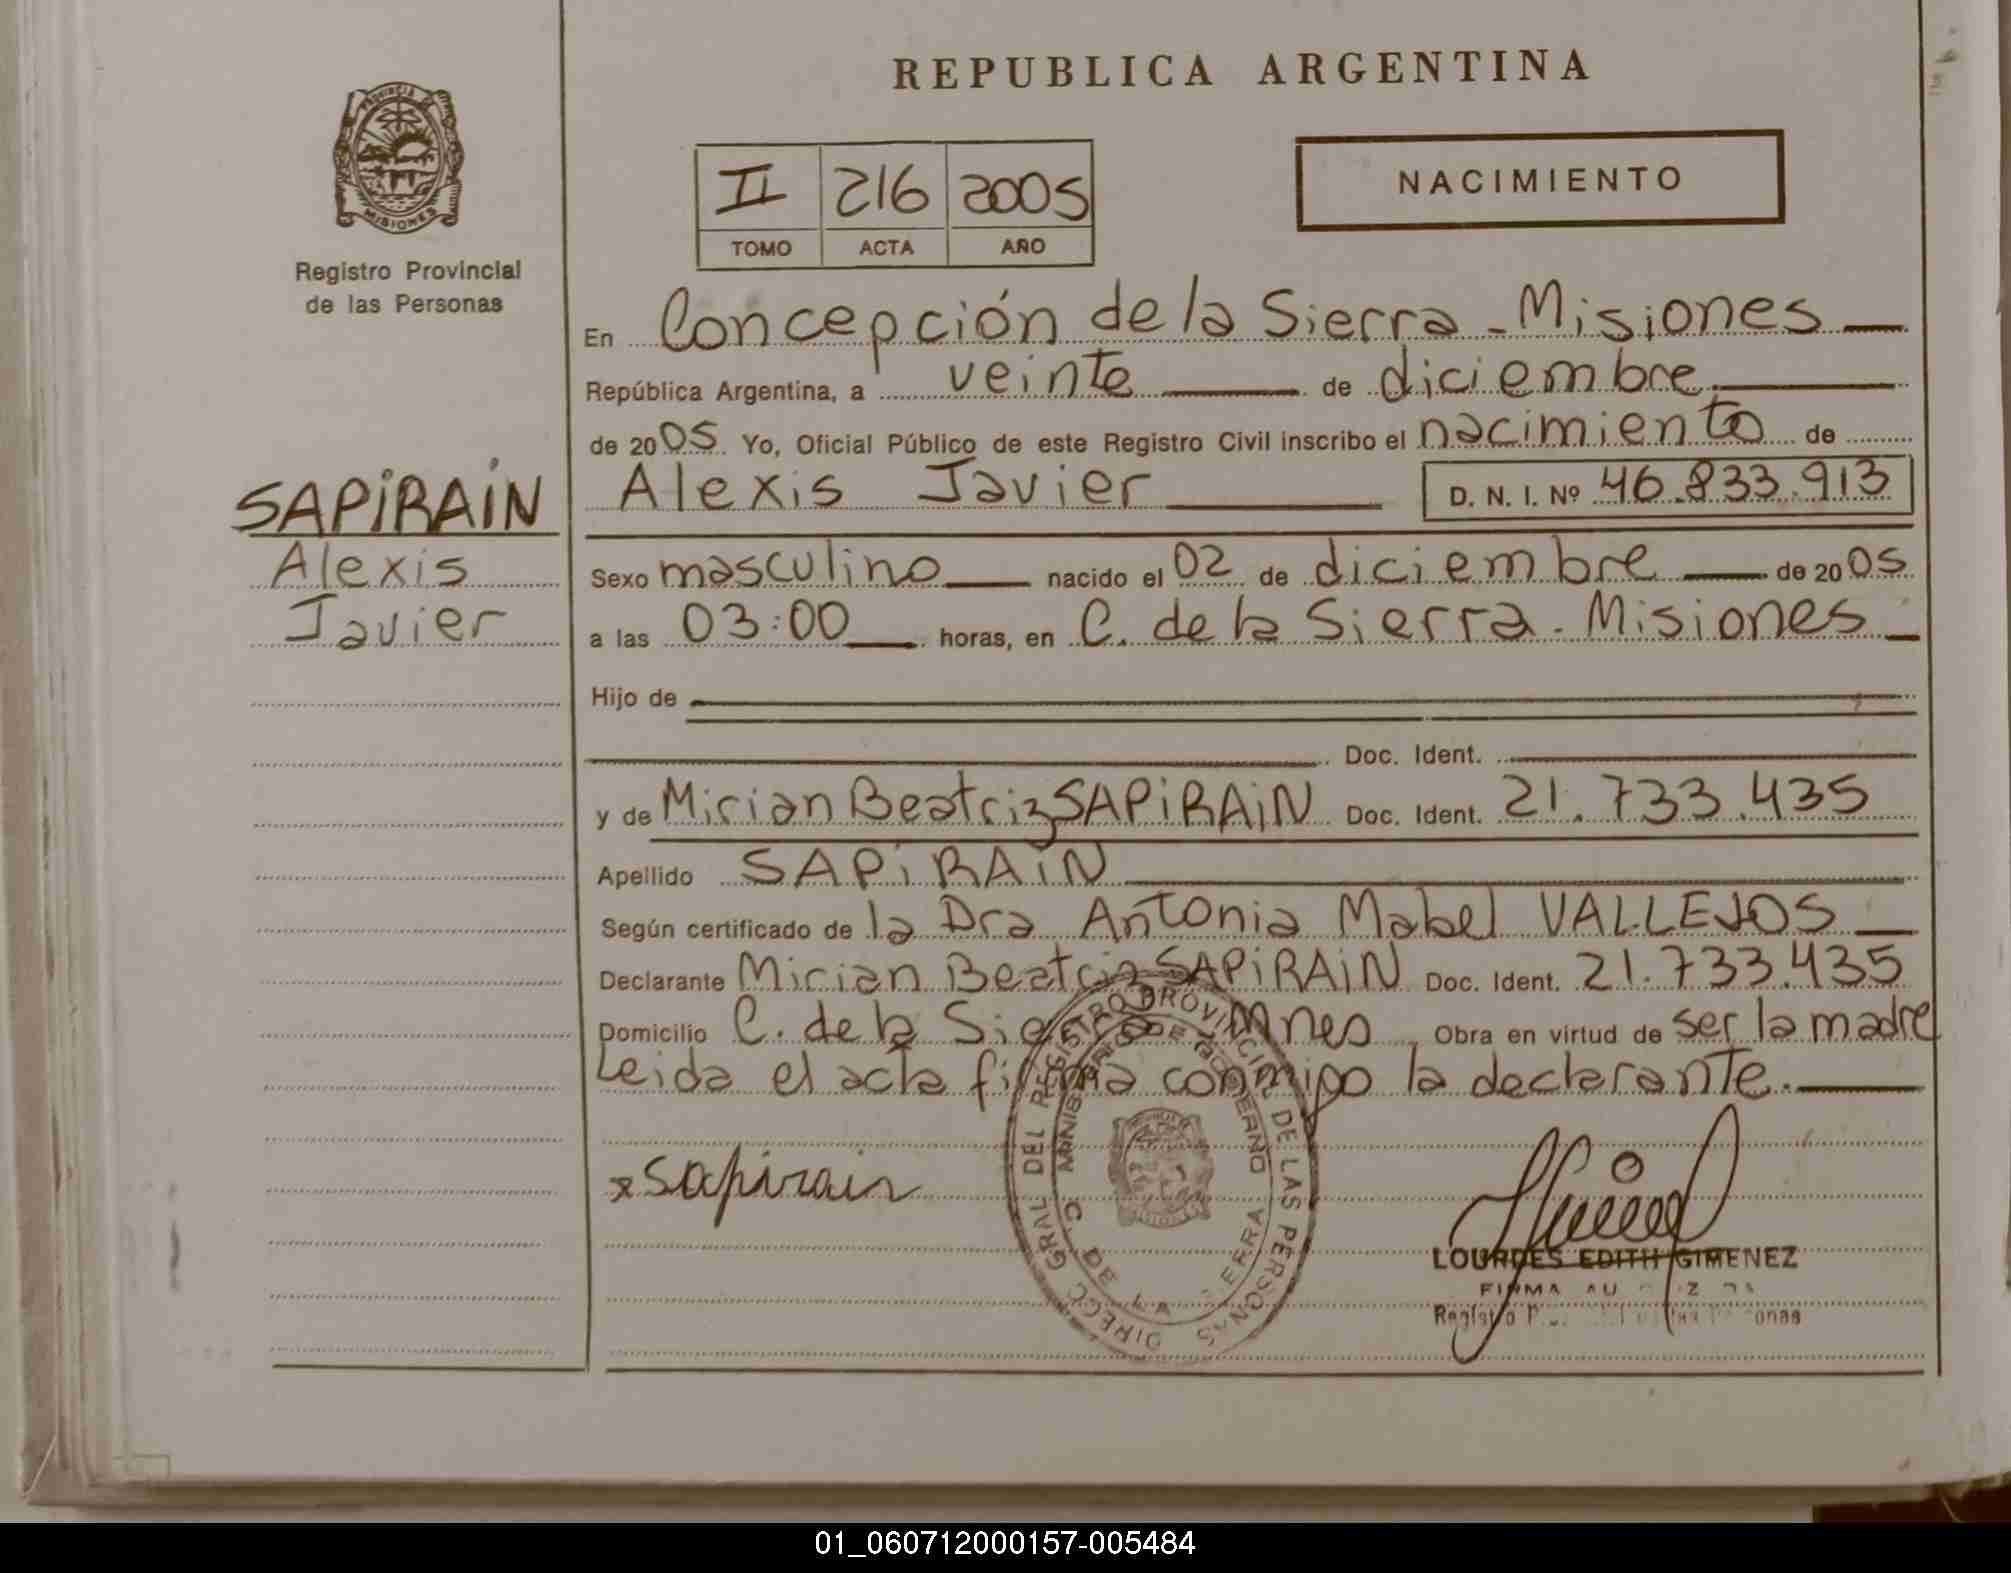 REPUBLICA ARGENTINA
PROVINCIA DE MISIONES
Registro Provincial
de las Personas
II 216 2005
TOMO ACTA AÑO
NACIMIENTO
En Concepción de la Sierra - Misiones
República Argentina, a veinte de diciembre
de 2005 Yo, Oficial Público de este Registro Civil inscribo el nacimiento de
SAPiRAiN
Alexis
Javier
Alexis Javier D. N. I. Nº 46.833.913
Sexo masculino nacido el 02 de diciembre de 2005
a las 03:00 horas, en C. de la Sierra. Misiones
Hijo de
Doc. Ident.
y de Mirian Beatriz SAPiRAiN Doc. Ident. 21.733.435
Apellido SAPiRAiN
Según certificado de la Dra Antonia Mabel VALLEJOS
Declarante Mirian Beatriz SAPiRAiN Doc. Ident. 21.733.435
Domicilio C. de la Sierra Mnes Obra en virtud de ser la madre
Leida el acta firma conmigo la declarante.
x Sapirain
DIRECC. GRAL DEL REGISTRO PROVINCIAL DE LAS PERSONAS
MINISTERIO DE GOBIERNO
C. DE LA SIERRA
LOURDES EDITH GIMENEZ
FIRMA
Registro
01_060712000157-005484